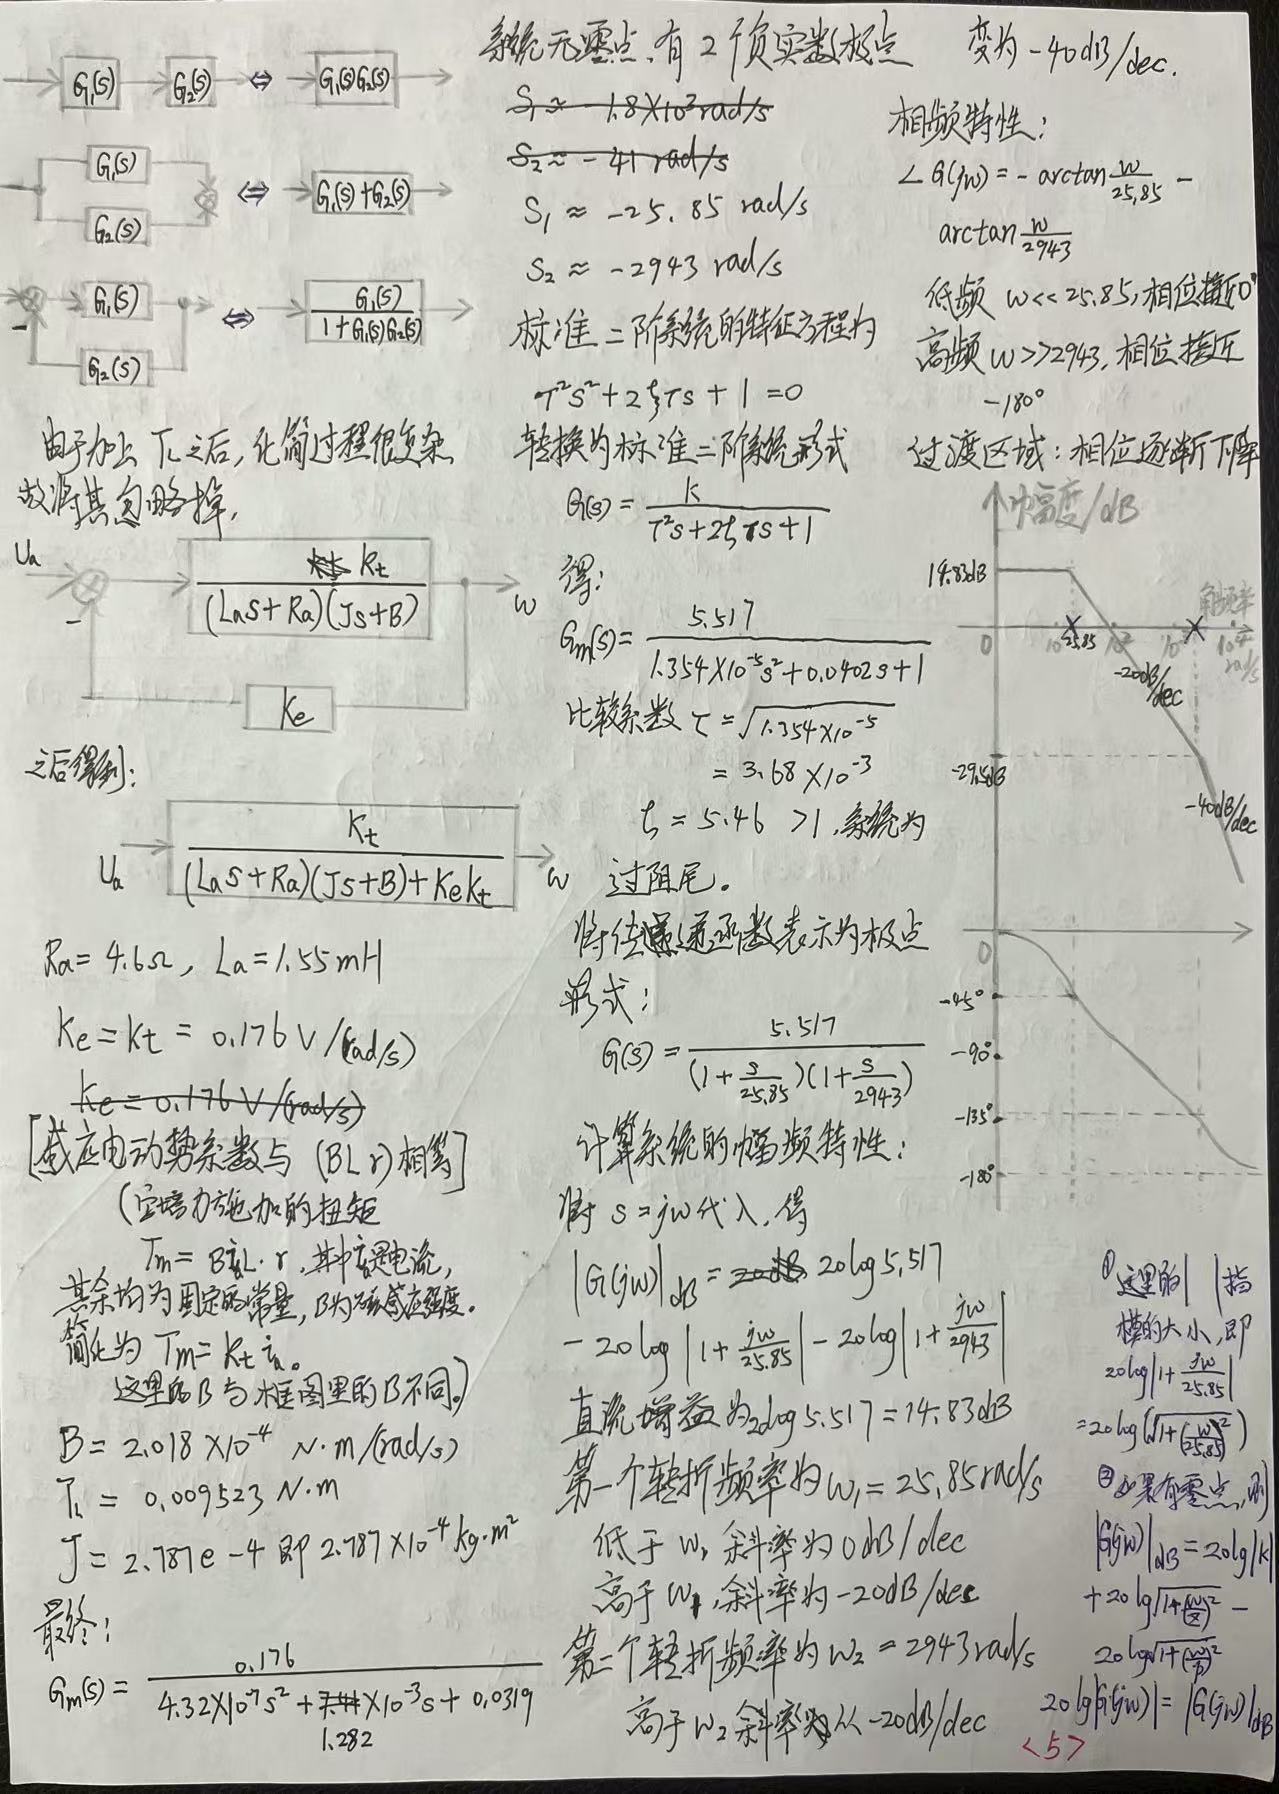 G₁(s) G₂(s) ⇔ G₁(s)G₂(s)
G₁(s)
G₂(s)
⇔ G₁(s)+G₂(s)
G₁(s)
G₂(s)
-
⇔ G₁(s) / 1+G₁(s)G₂(s)
由于加上 T_L 之后,化简过程很复杂
故将其忽略掉,
Ua
-
Kt / (LaS+Ra)(Js+B)
ω
Ke
之后得到:
Ua
Kt / (LaS+Ra)(Js+B)+KeKt
ω
Ra=4.6Ω, La=1.55mH
Ke=Kt=0.176 V/(rad/s)
Ke=0.176 V/(rad/s)
[感应电动势系数与 (BLr)相等]
(安培力施加的扭矩
Tm=BiaL·r,其中ia是电流,
其余均为固定的常量,B为磁感应强度。
简化为 Tm=Kt ia。
这里的B与框图里的B不同。)
B=2.018×10⁻⁴ N·m/(rad/s)
T_L=0.009523 N·m
J=2.787e-4 即 2.787×10⁻⁴ kg·m²
最终:
Gm(s)= 0.176 / 4.32×10⁻⁷s²+ ×10⁻³s+0.0319
1.282
系统无零点,有2个负实数极点
S₁≈-1.8×10³rad/s
S₂≈-41 rad/s
S₁≈-25.85 rad/s
S₂≈-2943 rad/s
标准二阶系统的特征方程为
T²s²+2ξTs+1=0
转换为标准二阶系统形式
G(s)= K / T²s+2ξTs+1
得:
Gm(s)= 5.517 / 1.354×10⁻⁵s²+0.0402s+1
比较系数 τ=√1.354×10⁻⁵
=3.68×10⁻³
ξ=5.46 >1,系统为
过阻尼。
将传递函数表示为极点
形式:
G(s)= 5.517 / (1+s/25.85)(1+s/2943)
计算系统的幅频特性:
将 s=jω代入,得
|G(jω)|dB=20dB 20log5.517
-20log|1+jω/25.85|-20log|1+jω/2943|
直流增益为20log5.517=14.83dB
第一个转折频率为ω₁=25.85rad/s
低于ω₁斜率为0dB/dec
高于ω₁,斜率为-20dB/dec
第二个转折频率为ω₂=2943rad/s
高于ω₂斜率从-20dB/dec
变为-40dB/dec.
相频特性:
∠G(jω)=-arctan ω/25.85 -
arctan ω/2943
低频 ω<<25.85,相位接近0°
高频 ω>>2943,相位接近
-180°
过渡区域:相位逐渐下降
幅度/dB
14.83dB
角频率
rad/s
0
25.85
10²
10⁴
-20dB/dec
-29.5dB
-40dB/dec
0
-45°
-90°
-135°
-180°
①这里的| |指
模的大小,即
20log|1+jω/25.85|
=20log(√1+(ω/25.85)²)
②如果有零点,则
|G(jω)|dB=20lg|K|
+20lg√1+(ω/z)² -
20lg√1+(ω/p)²
20lg|G(jω)|=|G(jω)|dB
<5>